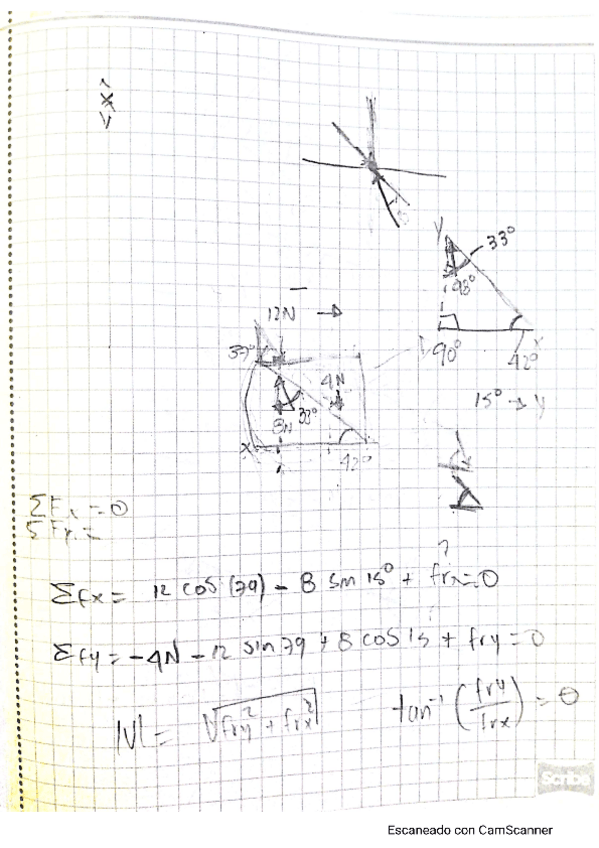 <x>
Y
33°
48°
12N
37°
90°
42°
X
4N
33°
8N
15° → y
X
42°
ΣFx = 0
ΣFy =
?
Σfx = 12 cos (79) - 8 sin 15° + frx = 0
Σfy = -4N - 12 sin 79 + 8 cos 15 + fry = 0
|V| = √fry² + frx²
tan⁻¹ (fry/frx) = θ
Scribe
Escaneado con CamScanner